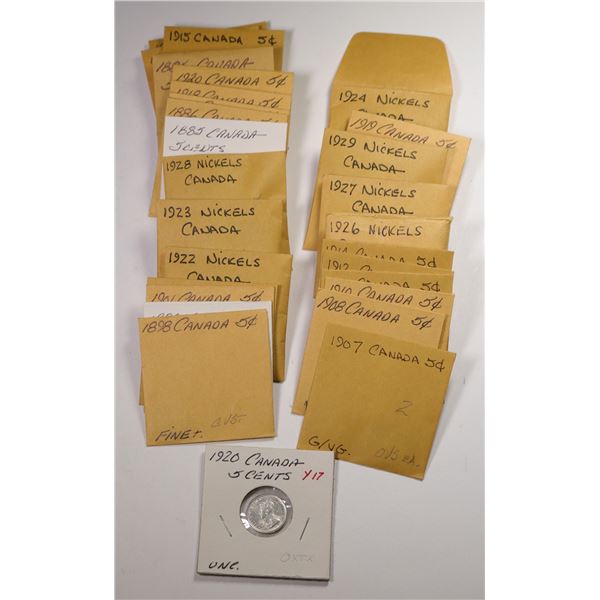 1915 CANADA 5¢
CANADA 5¢
1920 CANADA 5¢
CANADA 5¢
1886 CANADA
1885 CANADA
5 CENTS
1928 NICKELS
CANADA
1923 NICKELS
CANADA
1922 NICKELS
CANADA
1901 CANADA 5¢
1898 CANADA 5¢
FINE+.
1924 NICKELS
CANADA
1919 CANADA 5¢
1929 NICKELS
CANADA
1927 NICKELS
CANADA
1926 NICKELS
CANADA 5¢
1912 CANADA 5¢
1910 CANADA 5¢
1908 CANADA 5¢
1907 CANADA 5¢
2
G/VG.
1920 CANADA
5 CENTS Y17
UNC.